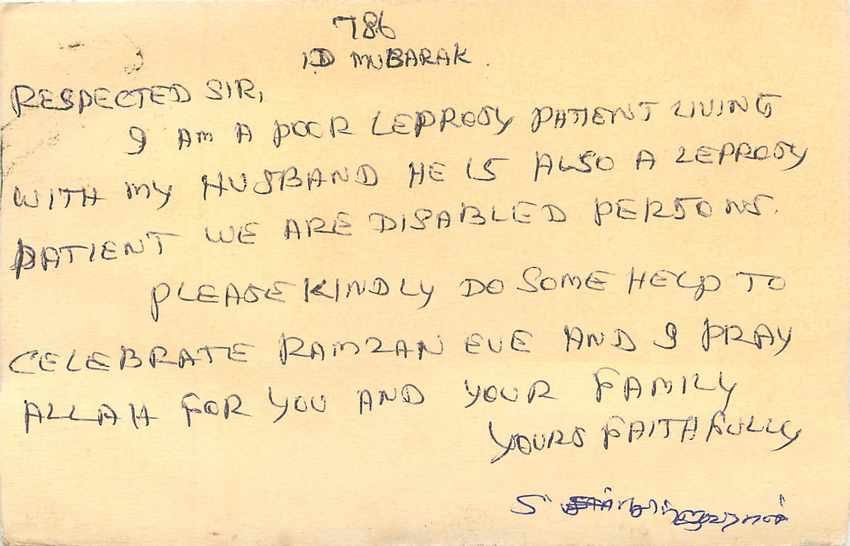 786
ID MUBARAK.
RESPECTED SIR,
I AM A POOR LEPROSY PATIENT LIVING
WITH MY HUSBAND HE IS ALSO A LEPROSY
PATIENT WE ARE DISABLED PERSONS.
PLEASE KINDLY DO SOME HELP TO
CELEBRATE RAMZAN EVE AND I PRAY
ALLAH FOR YOU AND YOUR FAMILY
YOURS FAITHFULLY
S